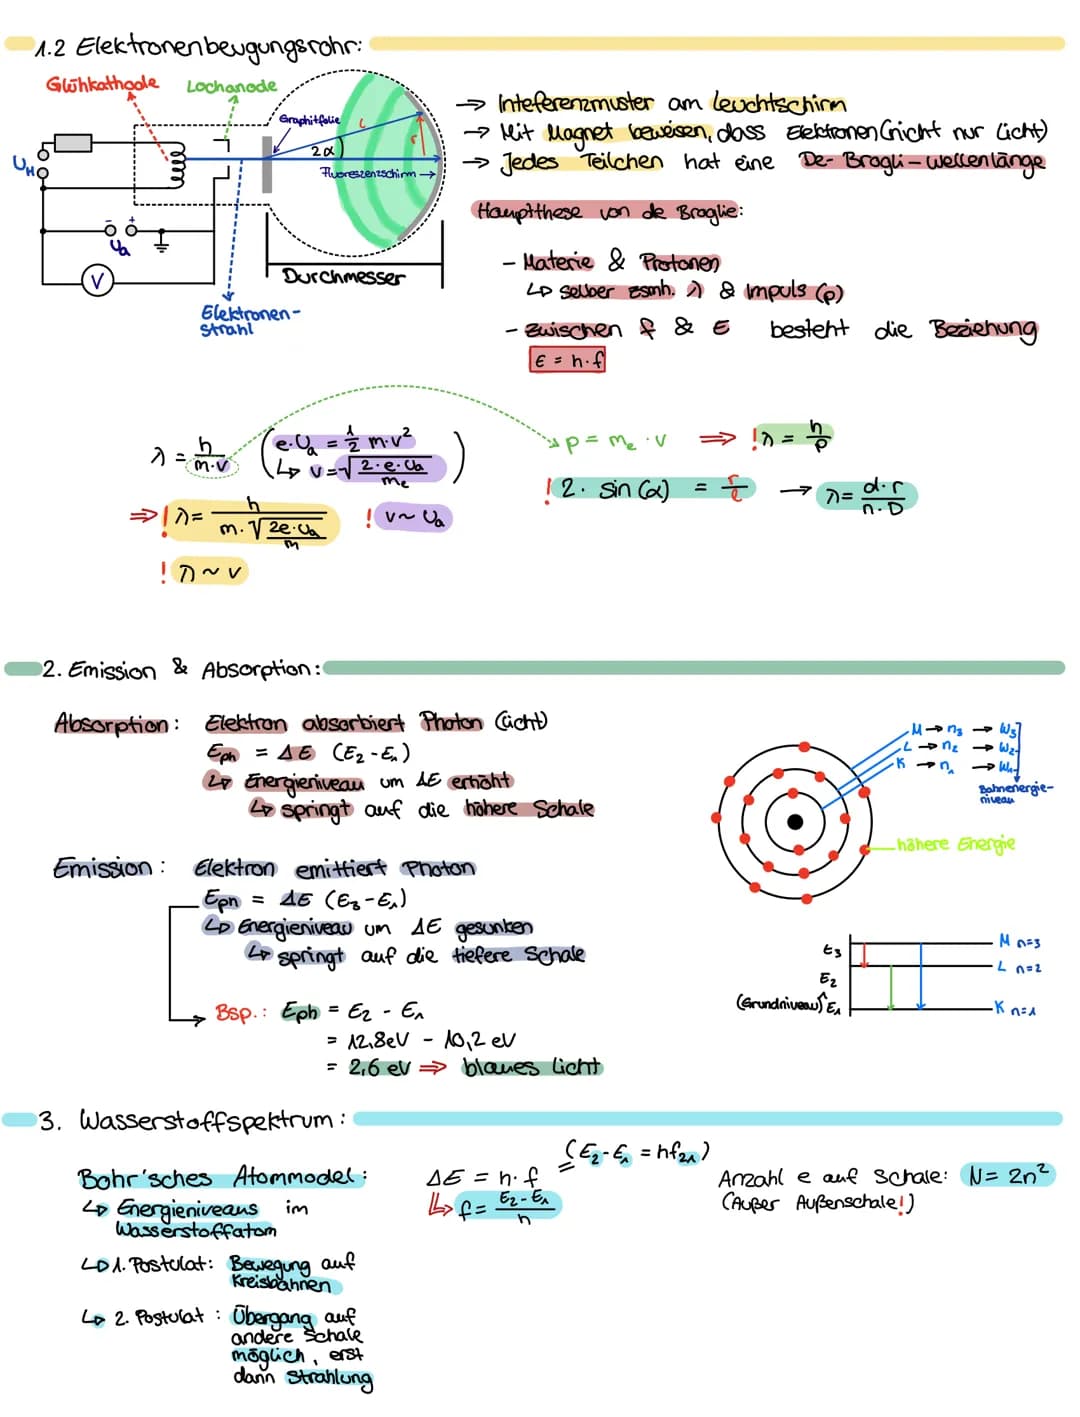 1.2 Elektronenbeugungsrohr:
Glühkathode
Lochanode
Graphitfolie
L
r
2α
Fluoreszenzschirm →
U_H
- +
U_a
V
Durchmesser
Elektronen-
strahl
→ Inteferenzmuster am Leuchtschirm
→ Mit Magnet beweisen, dass Elektronen (nicht nur Licht)
→ Jedes Teilchen hat eine De-Brogli-wellenlänge
Hauptthese von de Broglie:
- Materie & Protonen
↳ selber zsmh. λ & Impuls (p)
- zwischen f & E besteht die Beziehung
E = h·f
λ = h/(m·v) (e·U_a = 1/2 m·v²
↳ v = √(2·e·U_a/m_e))
⇒ ! λ = h/(m·√(2e·U_a/m)) ! v ~ U_a
! λ ~ v
p = m_e · v ⇒ ! λ = h/p
! 2· sin(α) = r/l → λ = d·r/(n·D)
2. Emission & Absorption:
Absorption: Elektron absorbiert Photon (Licht)
E_ph = ΔE (E₂-E₁)
↳ Energieniveau um ΔE erhöht
↳ springt auf die höhere Schale
Emission: Elektron emittiert Photon
E_ph = ΔE (E₃-E₁)
↳ Energieniveau um ΔE gesunken
↳ springt auf die tiefere Schale
Bsp.: E_ph = E₂ - E₁
= 12,8eV - 10,2 eV
= 2,6 eV ⇒ blaues Licht
M → n₃ → W₃
L → n₂ → W₂
K → n₁ → W₁
Bahnenergie-
niveau
höhere Energie
E₃ M n=3
L n=2
E₂
(Grundniveau) E₁ K n=1
3. Wasserstoffspektrum:
Bohr'sches Atommodel:
↳ Energieniveaus im
Wasserstoffatom
↳ 1. Postulat: Bewegung auf
Kreisbahnen
↳ 2. Postulat: Übergang auf
andere Schale
möglich, erst
dann Strahlung
(E₂-E₁ = hf₂₁)
ΔE = h·f
↳ f = (E₂-E₁)/h
Anzahl e auf Schale: N = 2n²
(Außer Außenschale!)